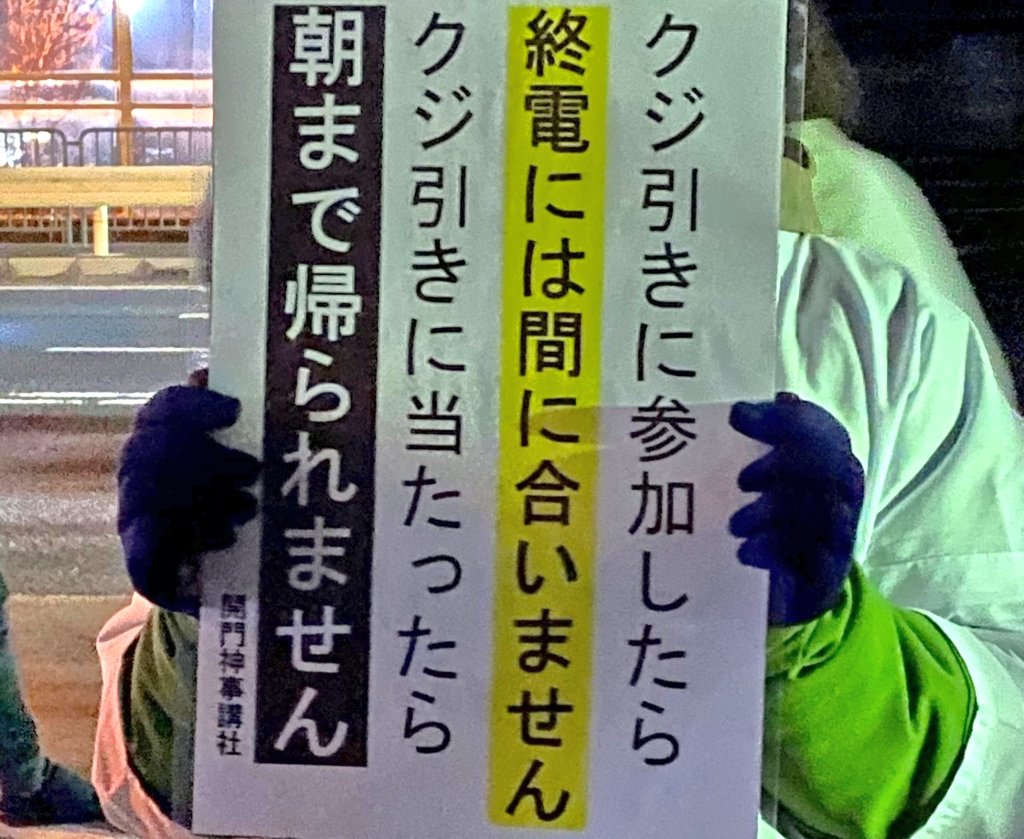 クジ引きに参加したら
終電には間に合いません
クジ引きに当たったら
朝まで帰られません
開門神事講社